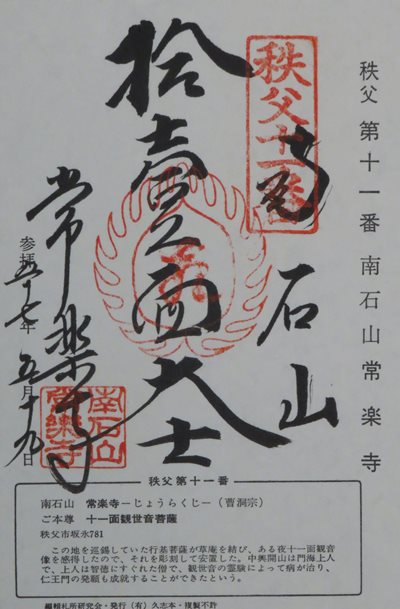 秩父 第十一番 南石山常楽寺
秩父十一番
南石山
拾壹面大士
常楽寺
参拝五十七年 五月十九日
南石山
常楽寺
秩父第十一番
南石山 常楽寺ーじょうらくじー（曹洞宗）
ご本尊 十一面観世音菩薩
秩父市坂氷781
この地を巡錫していた行基菩薩が草庵を結び、ある夜十一面観音
像を感得したので、それを彫刻して安置した。中興開山は門海上人
で、上人は智徳にすぐれた僧で、観世音の霊験によって病が治り、
仁王門の発願も成就することができたという。
編輯札所研究会・発行（有）久志本・複製不許